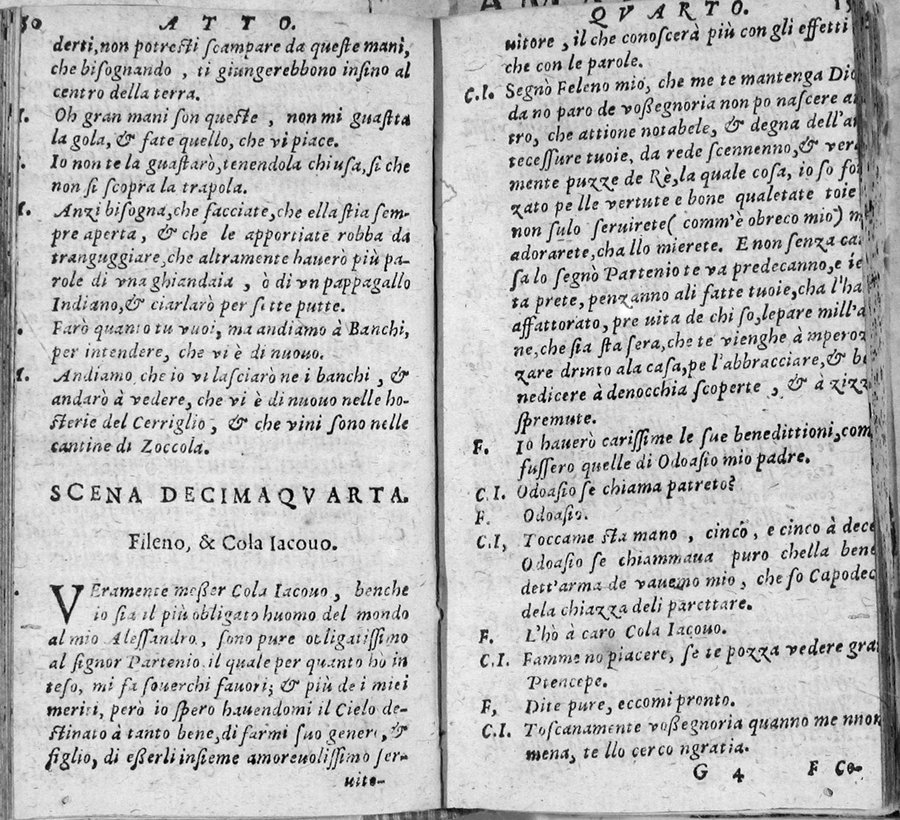 50 ATTO.
derti, non potresti scampare da queste mani,
che bisognando, ti giungerebbono insino al
centro della terra.
I. Oh gran mani son queste, non mi guastta
la gola, & fate quello, che vi piace.
. Io non te la guastarò, tenendola chiusa, sì che
non si scopra la trapola.
I. Anzi bisogna, che facciate, che ella stia sem-
pre aperta, & che le apportiate robba da
tranguggiare, che altramente hauerò più pa-
role di vna ghiandaia, ò di vn pappagallo
Indiano, & ciarlarò per sette putte.
. Farò quanto tu vuoi, ma andiamo à Banchi,
per intendere, che vi è di nuouo.
I. Andiamo, che io vi lasciarò ne i banchi, &
andarò à vedere, che vi è di nuouo nelle ho-
sterie del Cerriglio, & che vini sono nelle
cantine di Zoccola.
SCENA DECIMAQVARTA.
Fileno, & Cola Iacouo.
VEramente meßer Cola Iacouo, benche
io sia il più obligato huomo del mondo
al mio Alessandro, sono pure obligatissimo
al signor Partenio il quale per quanto hò in
teso, mi fa souerchi fauori; & più de i miei
meriti, però io spero hauendomi il Cielo de-
stinato à tanto bene, di farmi suo genero, &
figlio, di eßerli insieme amoreuolissimo ser-
uito-
QVARTO. 15
uitore, il che conoscerà più con gli effetti
che con le parole.
C.I. Segnò Feleno mio, che me te mantenga Dio
da no paro de voßegnoria non po nascere
tro, che attione notabele, & degna dell'
tecessure tuoie, da rede scennenno, &
mente puzze de Rè, la quale cosa, io so for
zato pe lle vertute e bone qualetate toie
non sulo seruirete (comm'è obreco mio) m
adorarete, cha llo mierete. E non senza
sa lo segnò Partenio te va predecanno, e
ta prete, penzanno ali fatte tuoie, cha l'ha
affattorato, pre uita de chi so, le pare mill'a
ne, che sia sta sera, che te vienghe à mperoz
zare drinto ala casa, pe l'abbracciare, & be
nedicere à denocchia scoperte, & à zizz
spremute.
F. Io hauerò carissime le sue benedittioni, com
fussero quelle di Odoasio mio padre.
C.I. Odoasio se chiama patreto?
F. Odoasio.
C.I, Toccame sta mano, cinco, e cinco à dece
Odoasio se chiammaua puro chella bene
dett'arma de vauemo mio, che fo Capodec
dela chiazza deli parettare.
F. L'hò à caro Cola Iacouo.
C.I. Famme no piacere, se te pozza vedere gra
Ptencepe.
F, Dite pure, eccomi pronto.
C.I. Toscanamente voßegnoria quanno me nnom
mena, te llo cerco ngratia.
G 4 F Co-